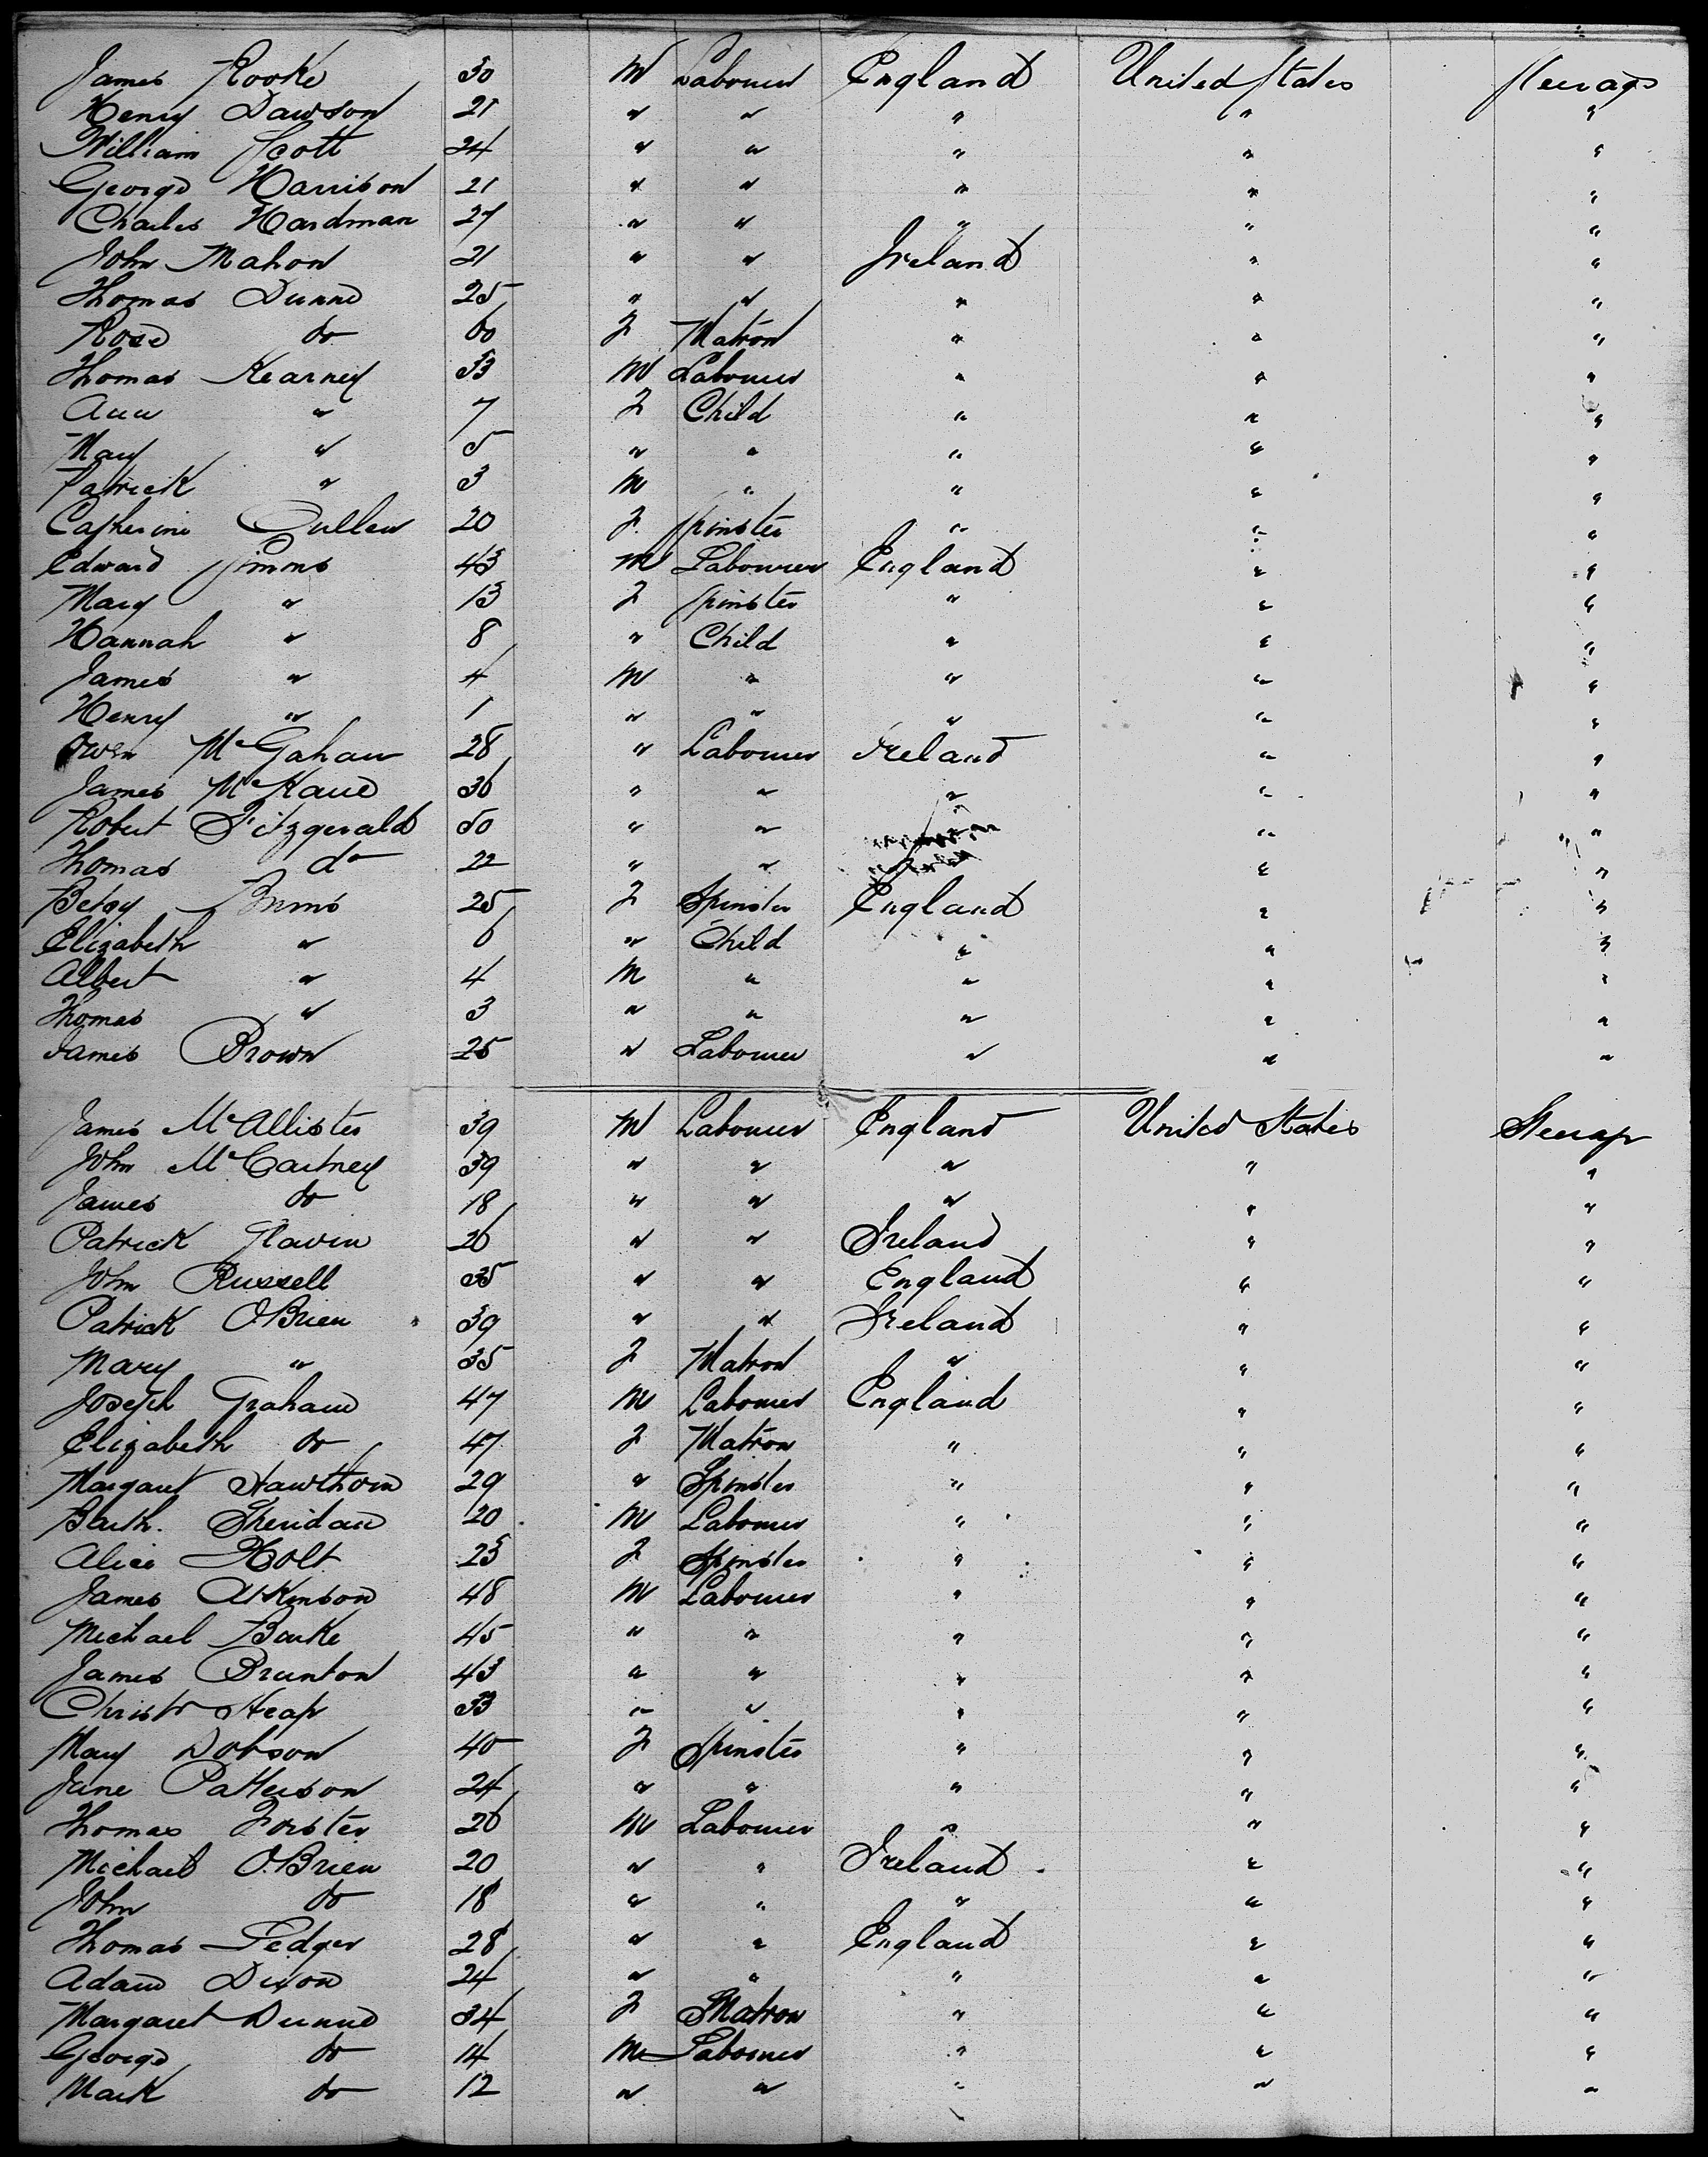 James Rooke 30 M Labourer England United States Steerage
Henry Dawson 21 " " " " "
William Scott 24 " " " " "
George Harrison 21 " " " " "
Charles Hardman 27 " " " " "
John Mahon 21 " " Ireland " "
Thomas Dunne 25 " " " " "
Rose do 60 F Matron " " "
Thomas Kearney 33 M Labourer " " "
Ann " 7 F Child " " "
Mary " 5 " " " " "
Patrick " 3 M " " " "
Catherine Cullen 20 F Spinster " " "
Edward Simms 43 M Labourer England " "
Mary " 13 F Spinster " " "
Hannah " 8 " Child " " "
James " 4 M " " " "
Henry " 1 " " " " "
Owen McGahan 28 " Labourer Ireland " "
James McKane 36 " " " " "
Robert Fitzgerald 50 " " " "
Thomas do 22 " " " "
Betsy 25 F Spinster England " "
Elizabeth " 6 " Child " " "
Albert " 4 M " " " "
Thomas " 3 " " " " "
James Brown 25 " Labourer " " "
James McAllister 39 M Labourer England United States Steerage
John McCartney 39 " " " " "
James do 18 " " " " "
Patrick Glavin 26 " " Ireland " "
John Russell 35 " " England " "
Patrick OBrien 39 " " Ireland " "
Mary " 35 F Matron " " "
Joseph Graham 47 M Labourer England " "
Elizabeth do 47 F Matron " " "
Margaret Hawthorn 29 " Spinster " " "
Barth. Sheridan 20 M Labourer " " "
Alice Holt 23 F Spinster " " "
James Atkinson 48 M Labourer " " "
Michael Burke 45 " " " " "
James Brunton 43 " " " " "
Christr Heap 33 " " " " "
Mary Dobson 40 F Spinster " " "
Jane Patterson 24 " " " " "
Thomas Forster 26 M Labourer " " "
Michael OBrien 20 " " Ireland " "
John do 18 " " " " "
Thomas Ledger 28 " " England " "
Adam Dixon 24 " " " " "
Margaret Dunne 34 F Matron " " "
George do 14 M Labourer " " "
Mark do 12 " " " " "